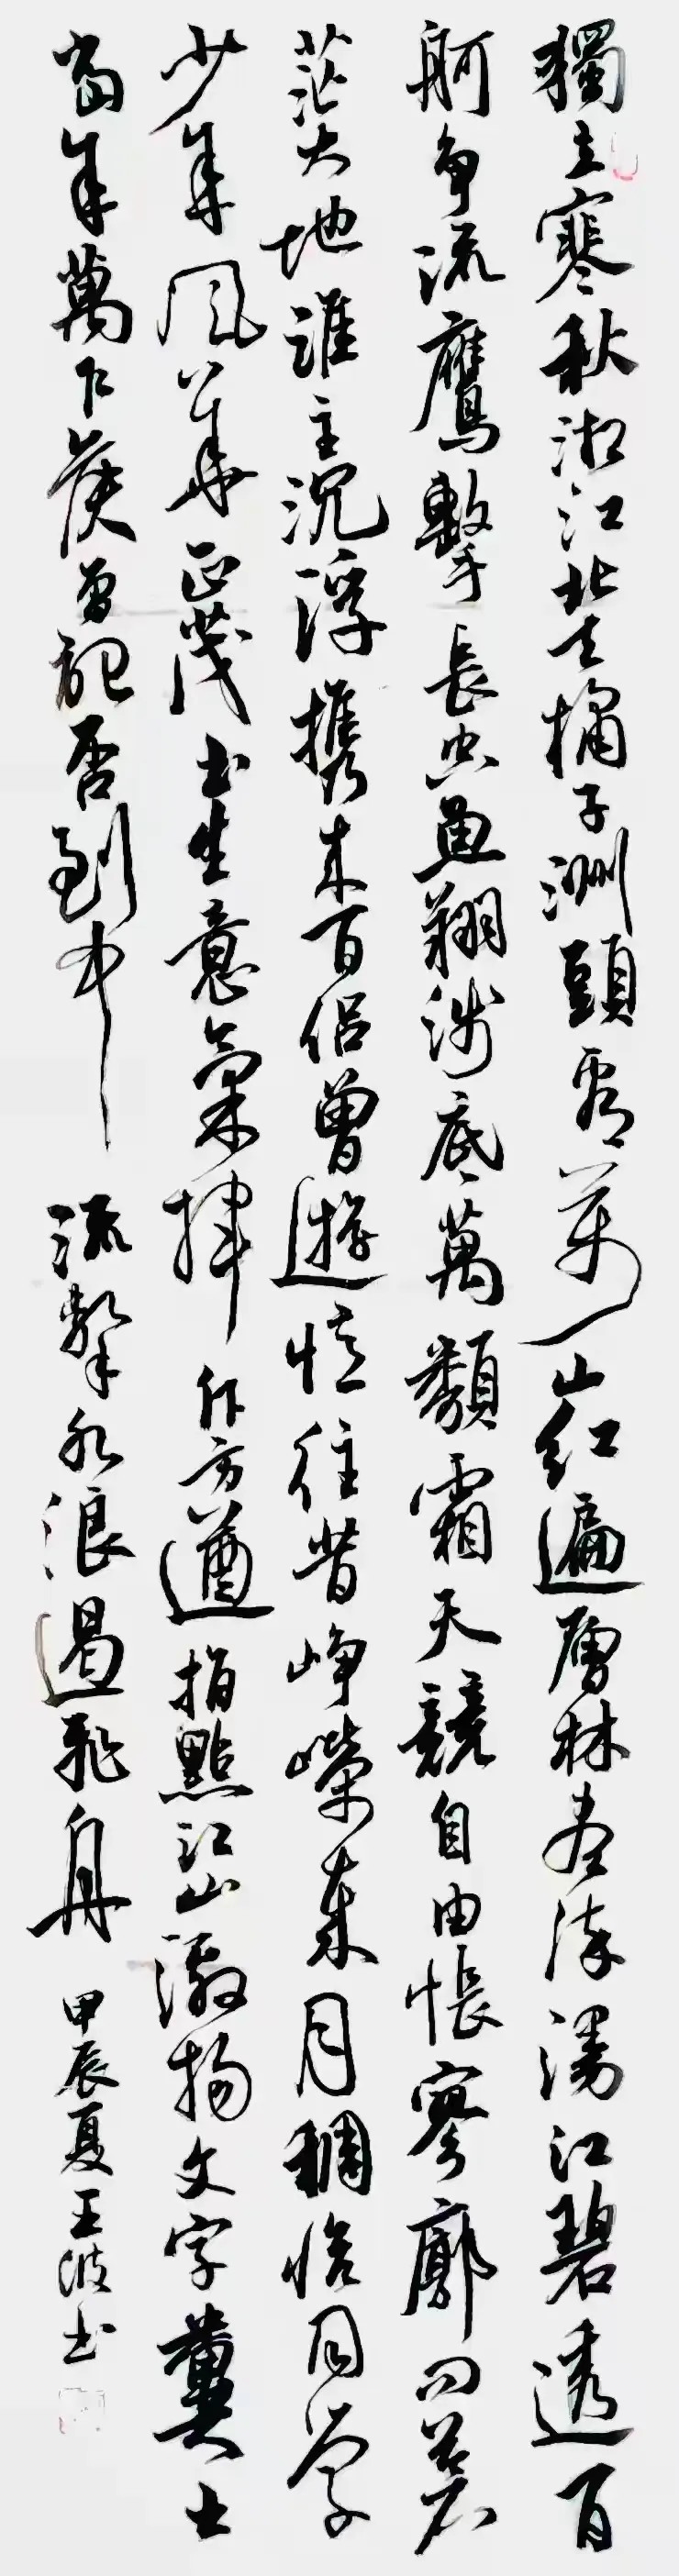 獨立寒秋湘江北去橘子洲頭看萬山紅遍層林盡染漫江碧透百
舸争流鷹擊長空魚翔淺底萬類霜天競自由悵寥廓问蒼
茫大地誰主沉浮携來百侣曾遊憶往昔峥嶸歲月稠恰同學
少年風華正茂书生意氣揮斥方遒指點江山激揚文字糞土
當年萬户侯曾記否到中流擊水浪遏飛舟甲辰夏王波书